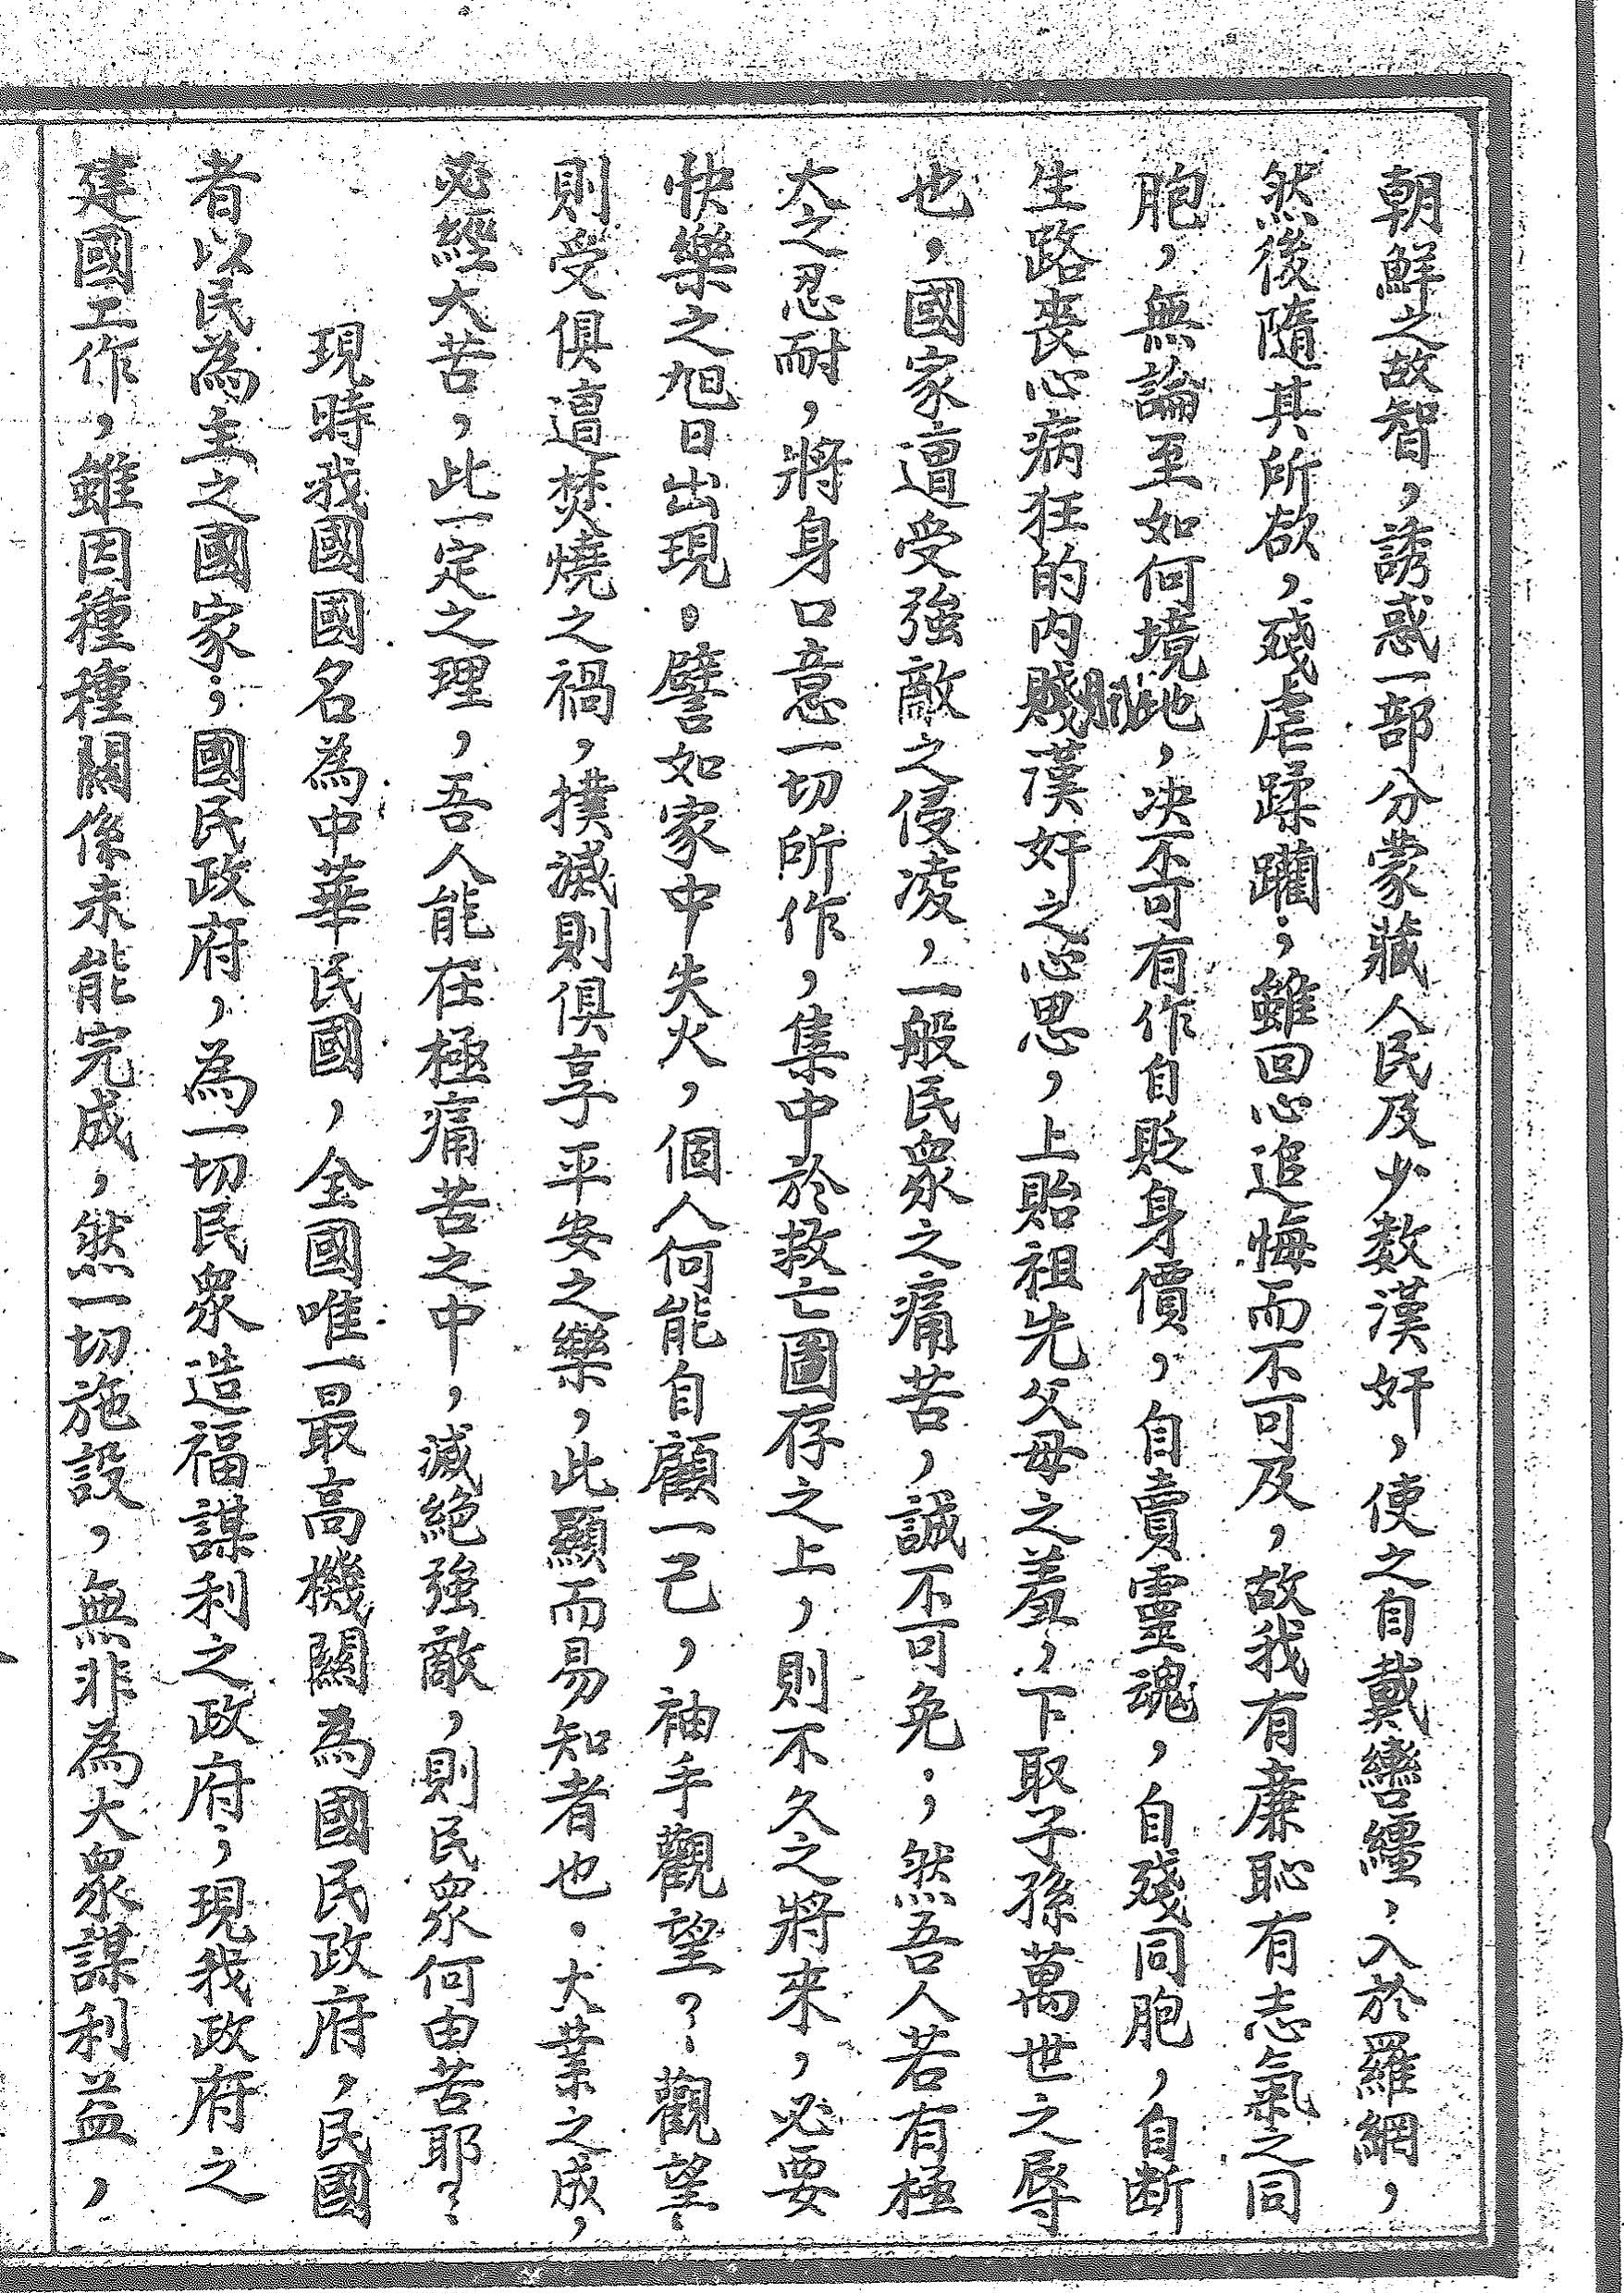 朝鮮之故智，誘惑一部分蒙藏人民及少數漢奸，使之自戴轡繮，入於羅網，
然後隨其所欲，殘虐蹂躪；雖回心追悔而不可及，故我有廉恥有志氣之同
胞，無論至如何境地，决不可有作自貶身價，自賣靈魂，自殘同胞，自断
生路喪心病狂的内賤漢奸之心思，上貽祖先父母之羞，下取子孫萬世之辱
也，國家遭受強敵之侵凌，一般民衆之痛苦，誠不可免；然吾人若有極
大之忍耐，將身口意一切所作，集中於救亡圖存之上，則不久之將來，必要
快樂之旭日出現。譬如家中失火，個人何能自顧一己，袖手觀望？觀望
則受俱遭焚燒之禍，撲滅則俱享平安之樂，此顯而易知者也．大業之成，
必經大苦，此一定之理，吾人能在極痛苦之中，滅絕強敵，則民衆何由苦耶？
現時我國國名為中華民國，全國唯一最高機關為國民政府，民國
者以民為主之國家；國民政府，為一切民衆造福謀利之政府；現我政府之
建國工作，雖因種種關係未能完成，然一切施設，無非為大衆謀利益，